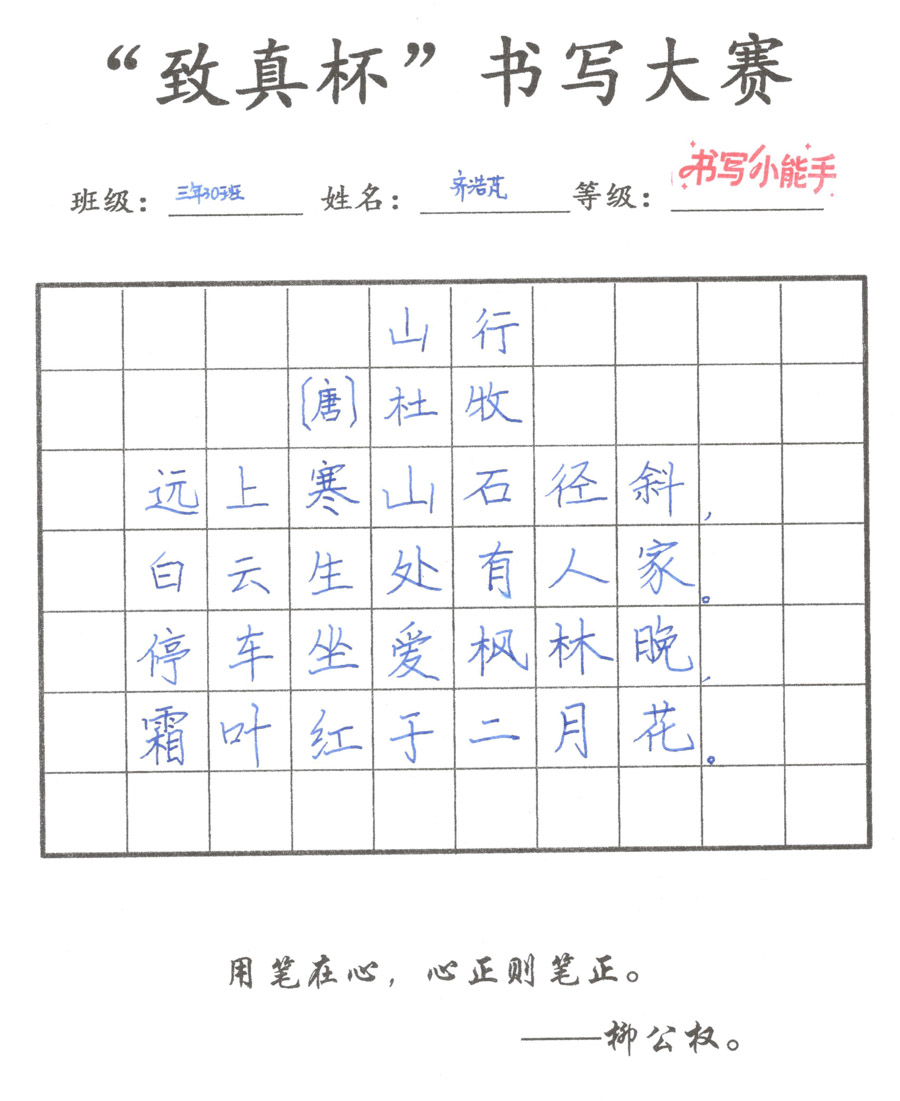 “致真杯”书写大赛
班级：三年30班 姓名：齐浩芃 等级：书写小能手
山行
〔唐〕杜牧
远上寒山石径斜，
白云生处有人家。
停车坐爱枫林晚，
霜叶红于二月花。
用笔在心，心正则笔正。
——柳公权。